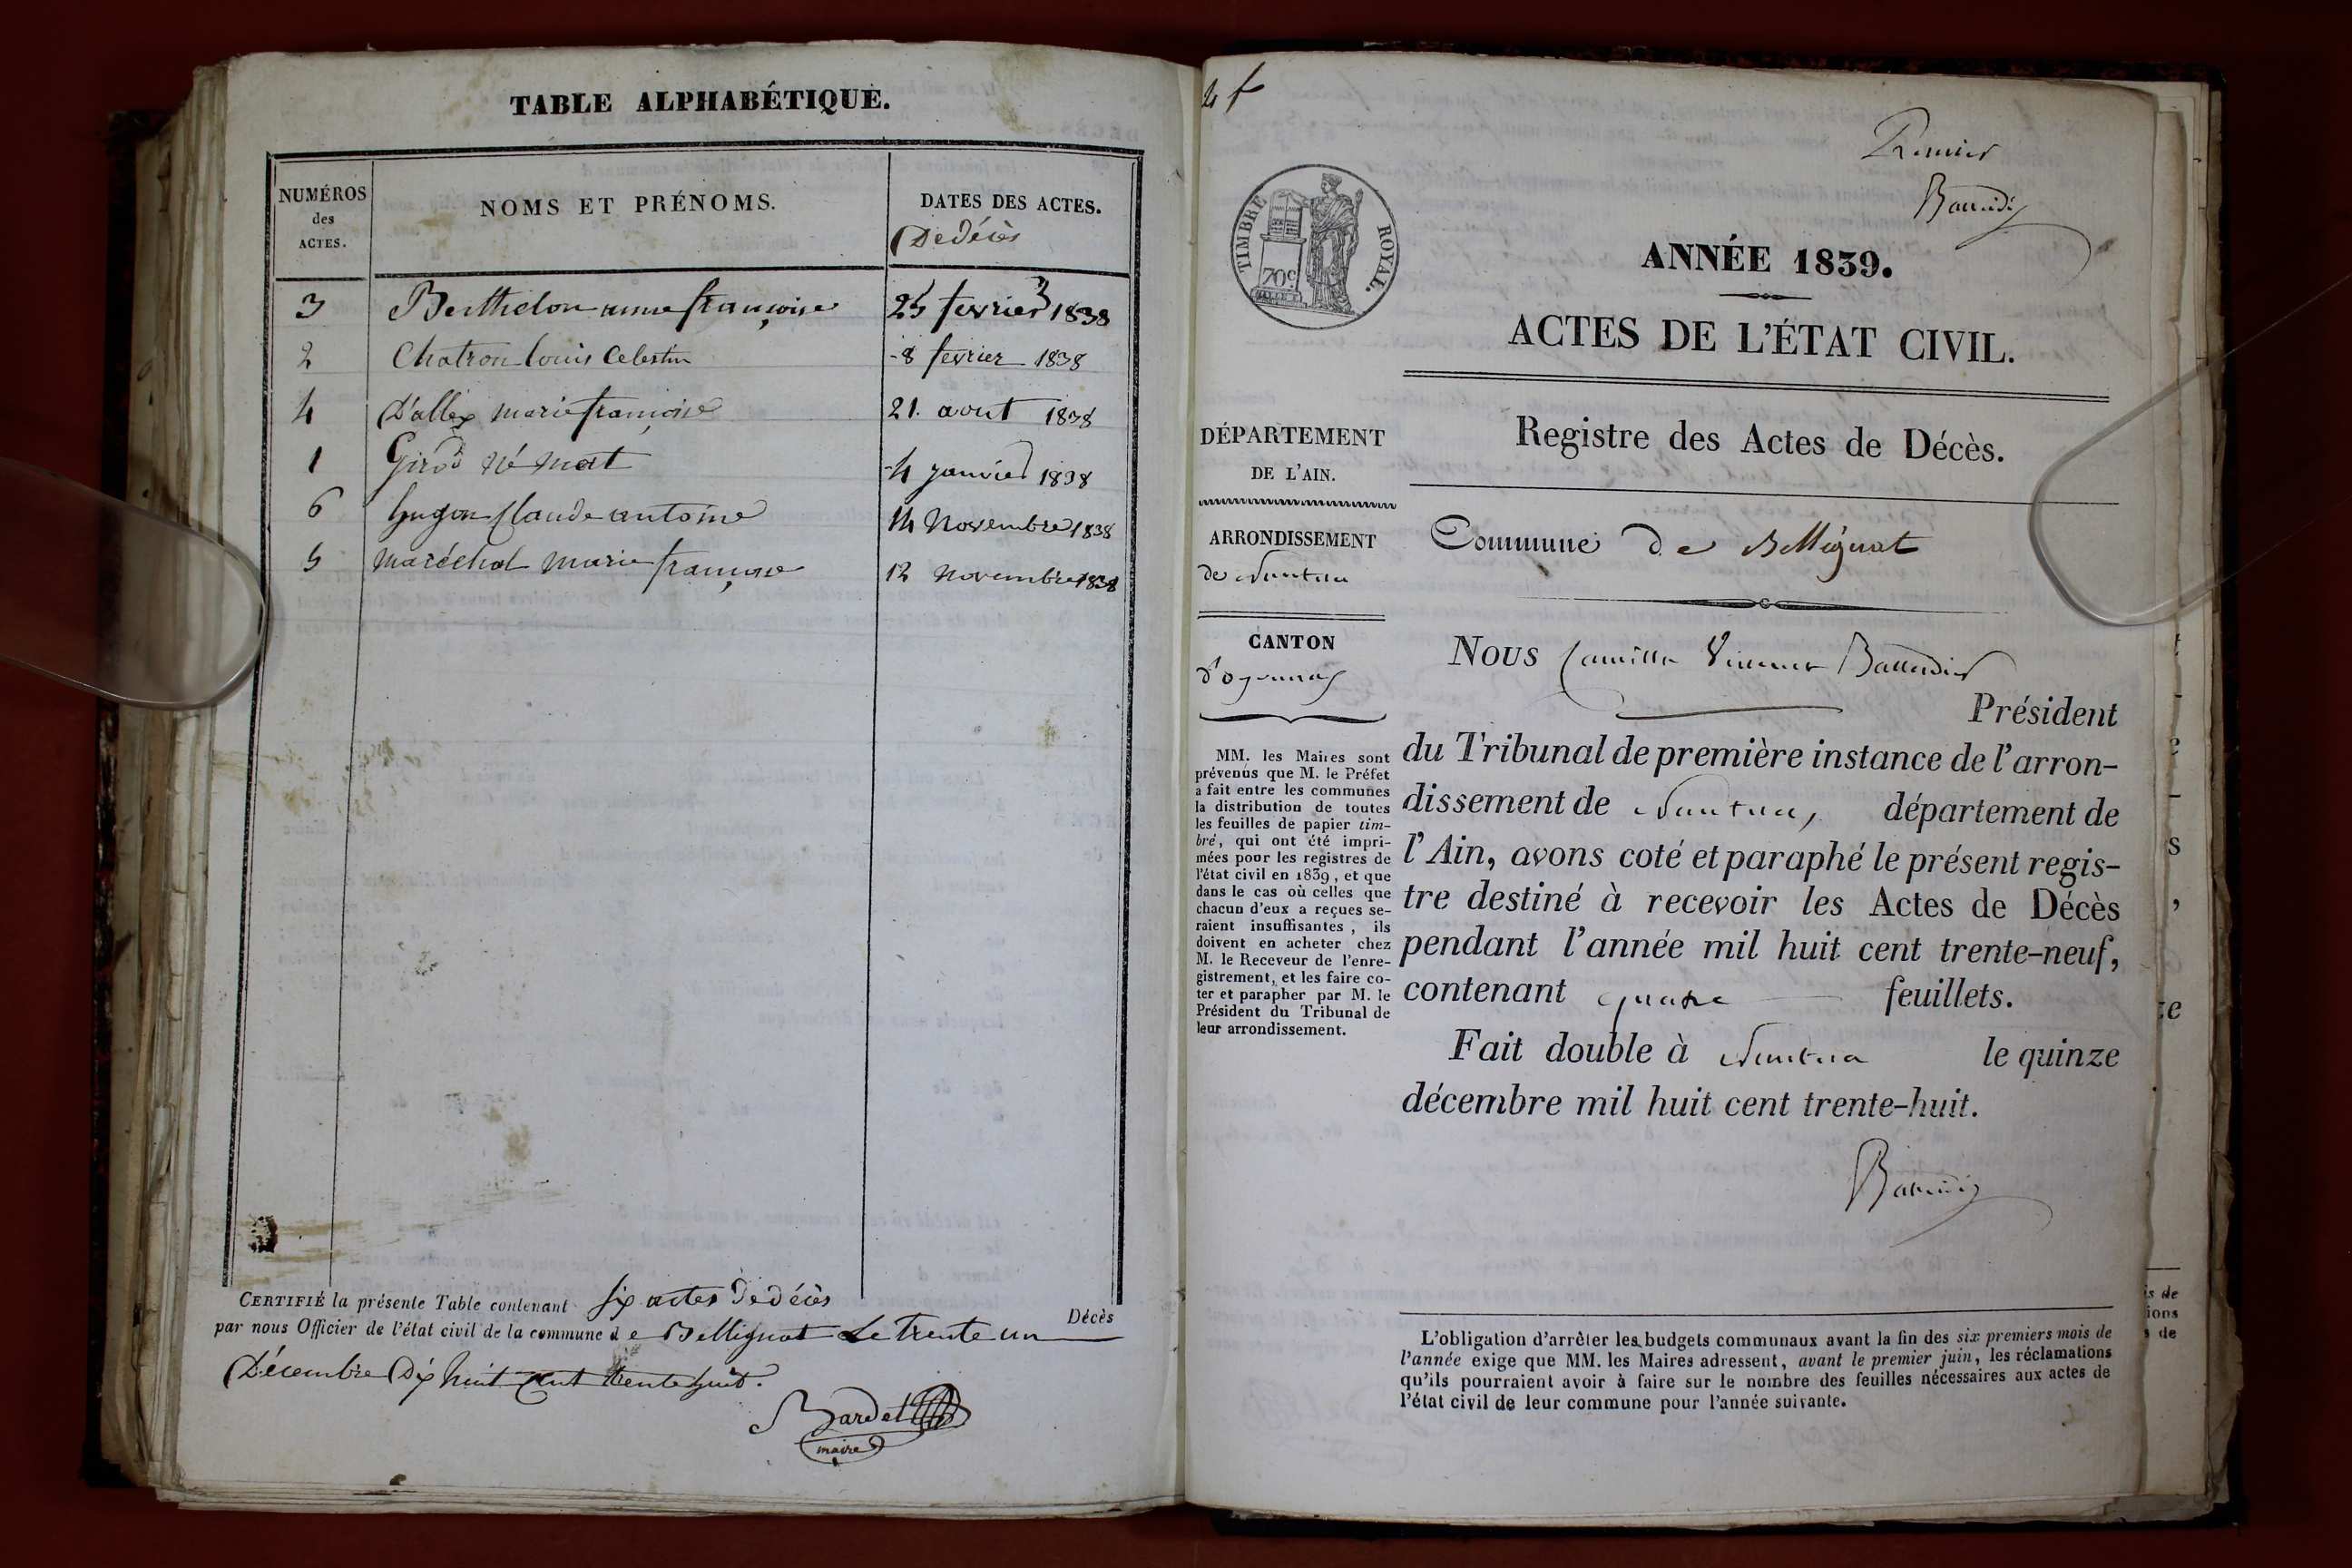 TABLE ALPHABÉTIQUE.
NUMÉROS des ACTES.
NOMS ET PRÉNOMS.
DATES DES ACTES.
De décès
3 Berthelon anne françoise 25 fevrier 1838
2 Chatron louis Celestin 8 fevrier 1838
4 D'allex marie françoise 21. aout 1838
1 Girod né mort 4 janvier 1838
6 hugon Claude antoine 14 Novembre 1838
5 maréchal marie françoise 12 novembre 1838
CERTIFIÉ la présente Table contenant six actes De décès
Décès
par nous Officier de l'état civil de la commune de Bellignat Le trente un
Décembre Dix huit Cent trente huit.
Bardet
maire
Premier
ANNÉE 1839.
ACTES DE L'ÉTAT CIVIL.
TIMBRE ROYAL.
70 c
DÉPARTEMENT
DE L'AIN.
ARRONDISSEMENT
de Nantua
CANTON
d'oyonnax
MM. les Maires sont
prévenus que M. le Préfet
a fait entre les communes
la distribution de toutes
les feuilles de papier tim-
bré, qui ont été impri-
mées pour les registres de
l'état civil en 1839, et que
dans le cas où celles que
chacun d'eux a reçues se-
raient insuffisantes, ils
doivent en acheter chez
M. le Receveur de l'enre-
gistrement, et les faire co-
ter et parapher par M. le
Président du Tribunal de
leur arrondissement.
Registre des Actes de Décès.
Commune de Bellignat
NOUS Camille Vincent
Président
du Tribunal de première instance de l'arron-
dissement de Nantua, département de
l'Ain, avons coté et paraphé le présent regis-
tre destiné à recevoir les Actes de Décès
pendant l'année mil huit cent trente-neuf,
contenant quatre feuillets.
Fait double à Nantua le quinze
décembre mil huit cent trente-huit.
L'obligation d'arrêter les budgets communaux avant la fin des six premiers mois de
l'année exige que MM. les Maires adressent, avant le premier juin, les réclamations
qu'ils pourraient avoir à faire sur le nombre des feuilles nécessaires aux actes de
l'état civil de leur commune pour l'année suivante.